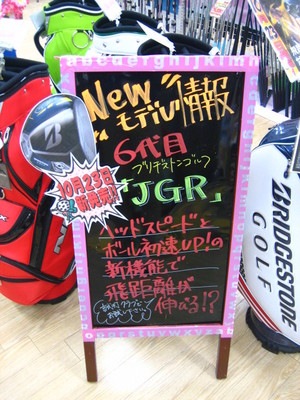 abcdefghijklmn
New モデル 情報
10月23日
新発売!
6代目
ブリヂストンゴルフ
「JGR」
ヘッドスピードと
ボール初速UP!の
新機能で
飛距離が
伸びる!?
BRIDGESTONE
GOLF